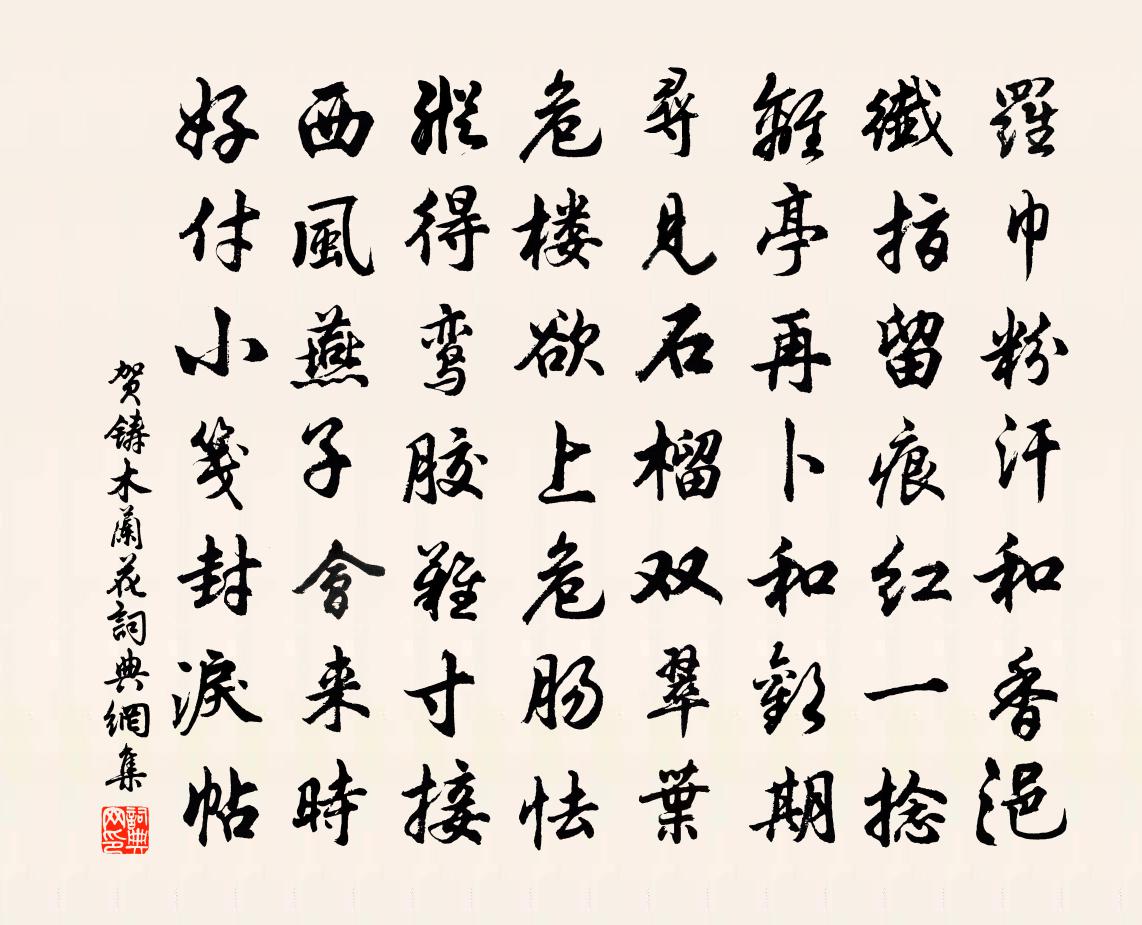 羅巾粉汗和香浥
纖指留痕红一捻
離亭再卜和歡期
尋見石榴双翠葉
危楼欲上危肠怯
縱得鸾胶難寸接
西風燕子會来時
好付小箋封淚帖
贺鑄木蘭花詞典網集
詞典网印